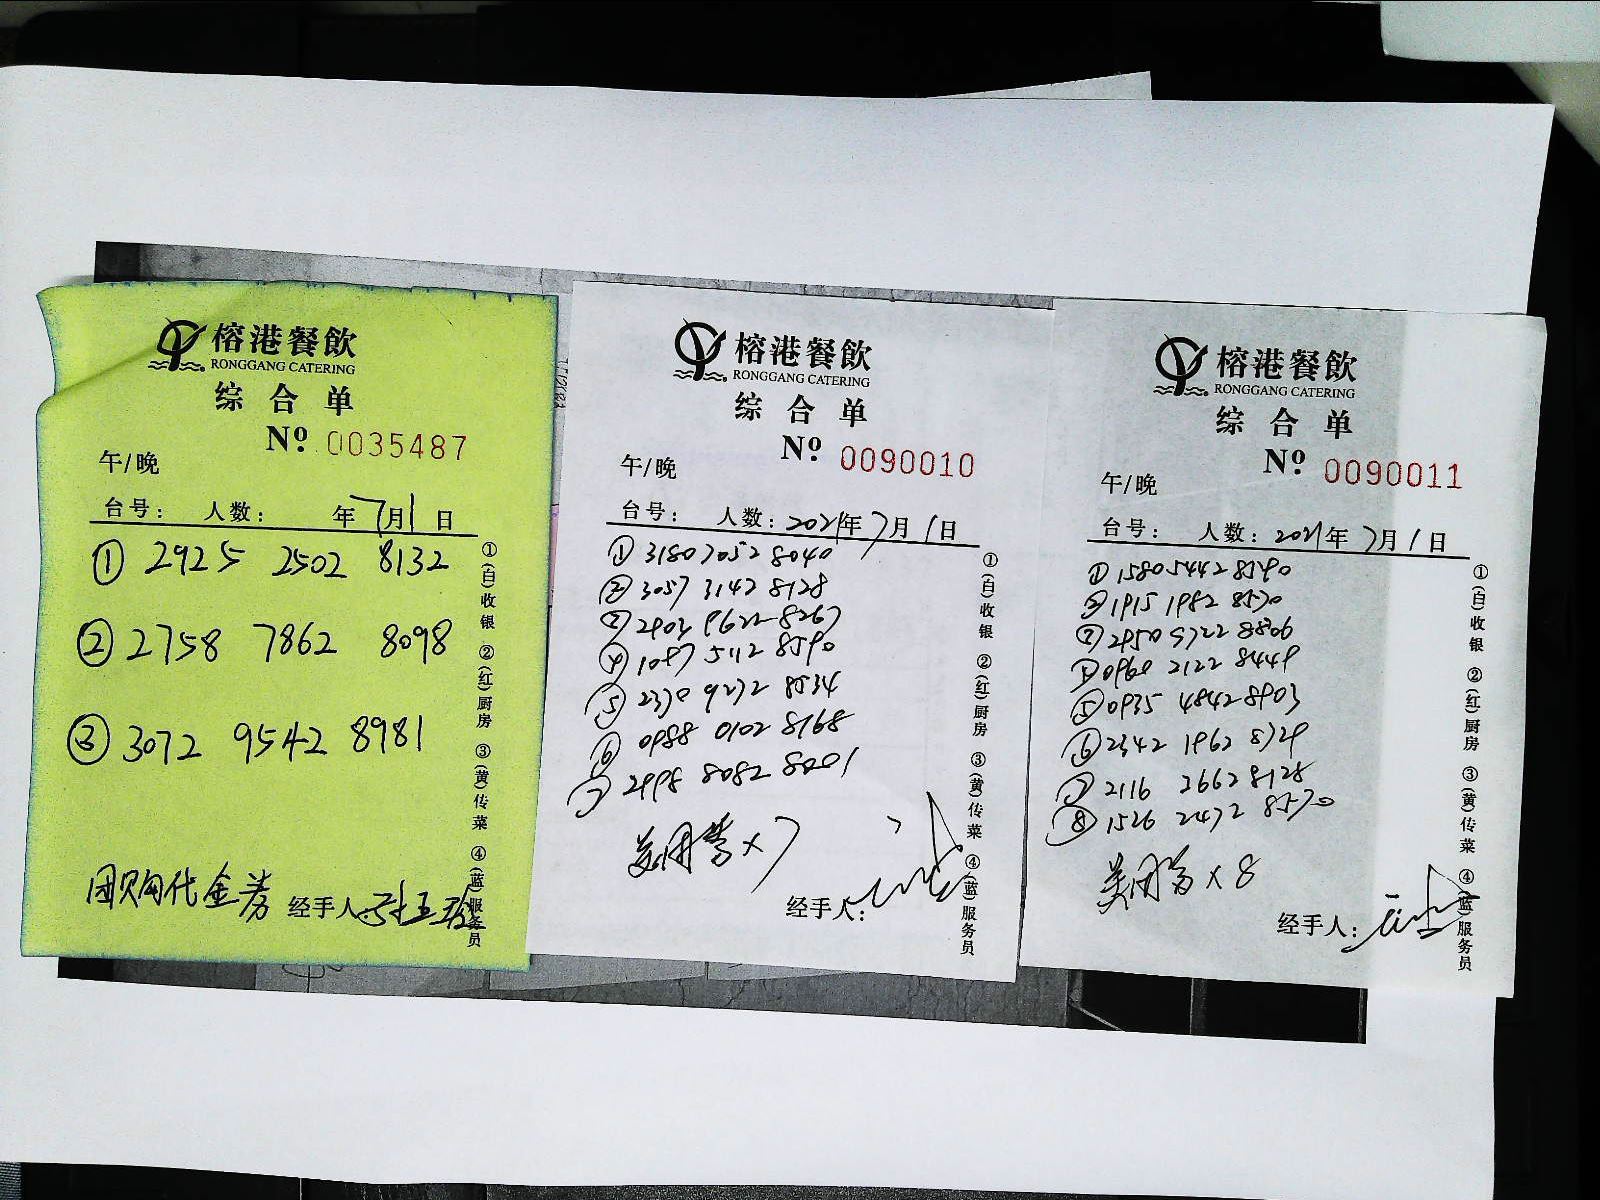 榕港餐飲
RONGGANG CATERING
综合单
Nº 0035487
午/晚
台号: 人数: 年7月1日
① 2925 2502 8132
② 2758 7862 8098
③ 3072 9542 8981
团购代金券 经手人:
①(白)收银 ②(红)厨房 ③(黄)传菜 ④(蓝)服务员
榕港餐飲
RONGGANG CATERING
综合单
Nº 0090010
午/晚
台号: 人数: 2021年7月1日
① 3180 7052 8040
② 3057 3142 8128
③ 2903 9622 8267
④ 1087 5112 8590
⑤ 2330 9232 8534
⑥ 0988 0102 8168
⑦ 2998 8082 8001
美团券×7
经手人:
①(白)收银 ②(红)厨房 ③(黄)传菜 ④(蓝)服务员
榕港餐飲
RONGGANG CATERING
综合单
Nº 0090011
午/晚
台号: 人数: 2021年7月1日
① 1580 5442 8590
② 1915 1982 8570
③ 2950 9722 8806
④ 0960 2122 8449
⑤ 0935 4842 8903
⑥ 2342 1962 8729
⑦ 2116 2662 8128
⑧ 1526 2472 8570
美团券×8
经手人:
①(白)收银 ②(红)厨房 ③(黄)传菜 ④(蓝)服务员